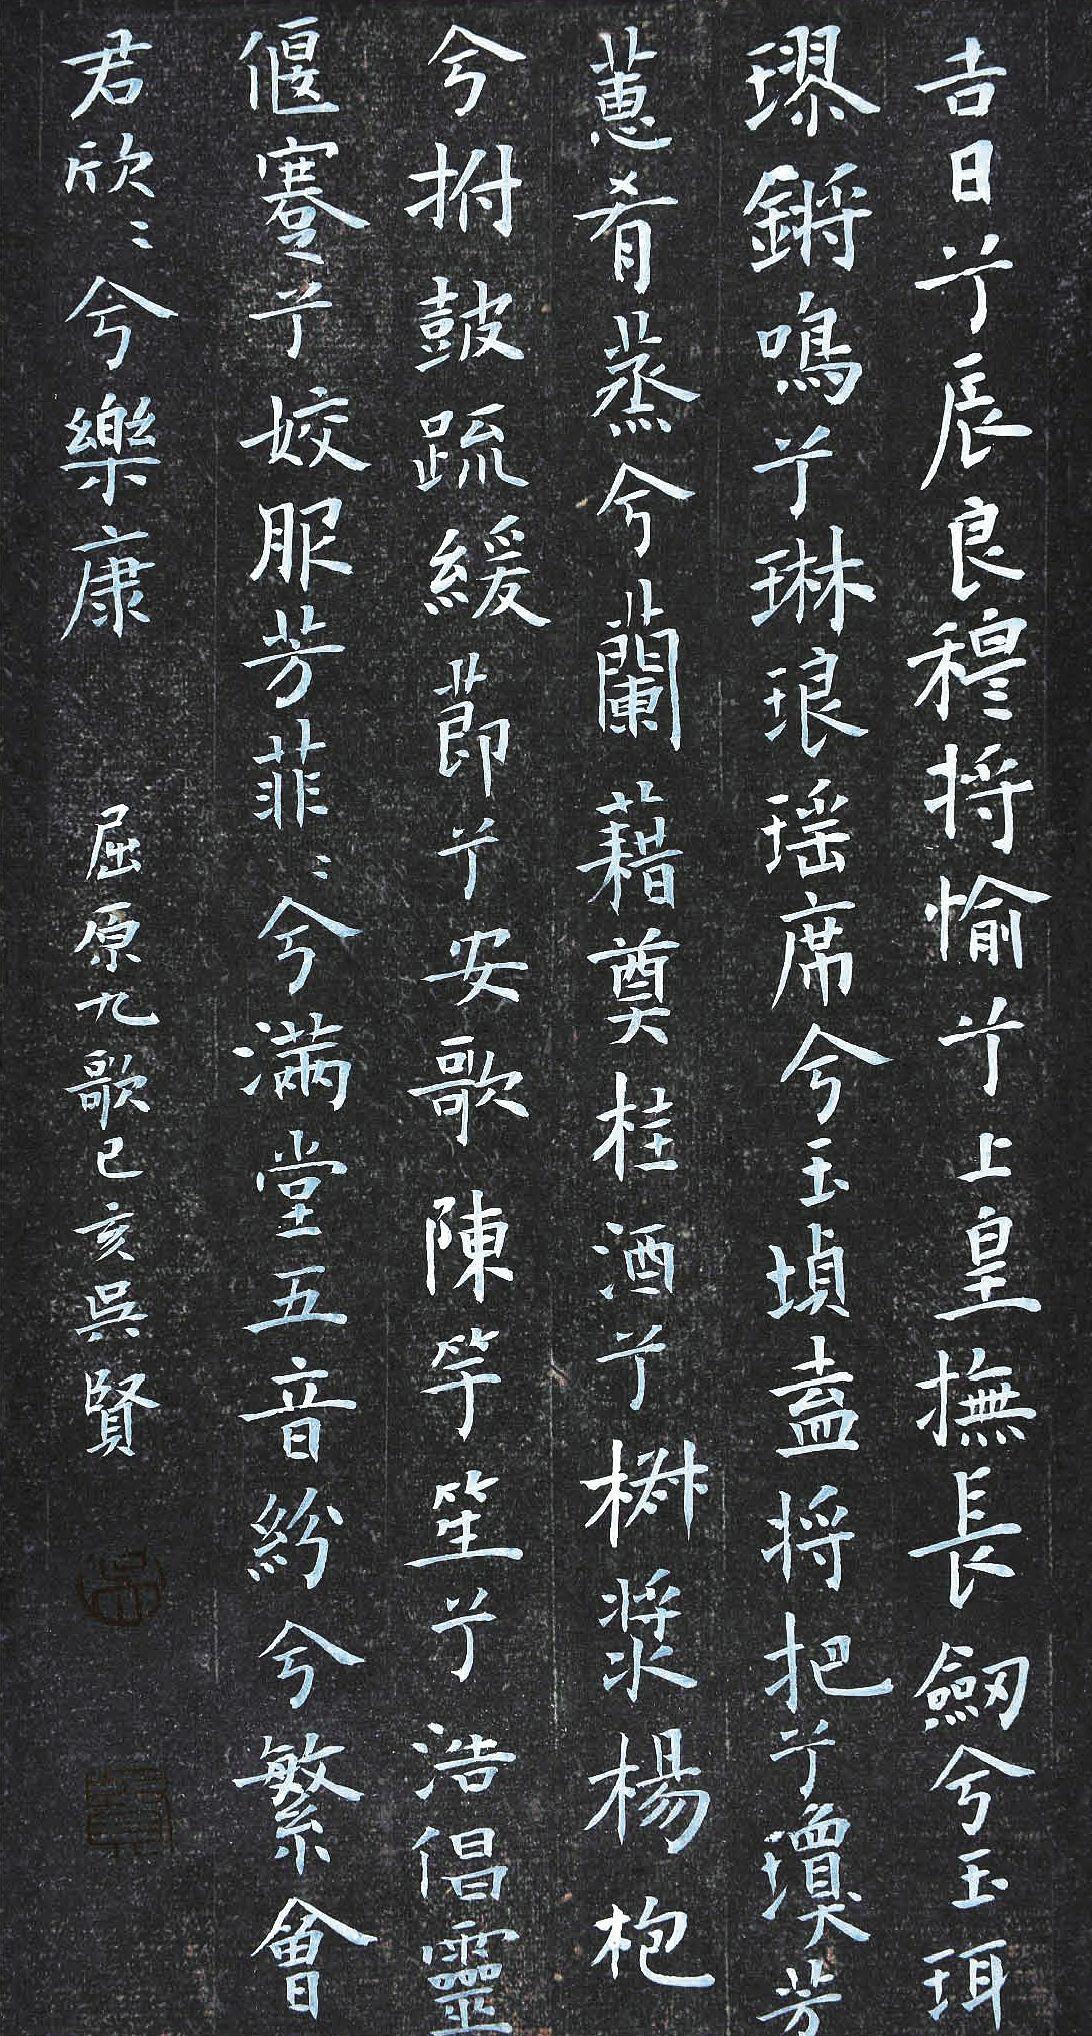 吉日兮辰良穆将愉兮上皇撫長劒兮玉珥
璆鏘鳴兮琳琅瑶席兮玉塡盍将把兮瓊芳
蕙肴蒸兮蘭藉奠桂酒兮椒漿楊枹
兮拊鼓疏緩莭兮安歌陳竽笙兮浩倡靈
偃蹇兮姣服芳菲〻兮滿堂五音紛兮繁會
君欣〻兮樂康 屈原九歌己亥吳賢